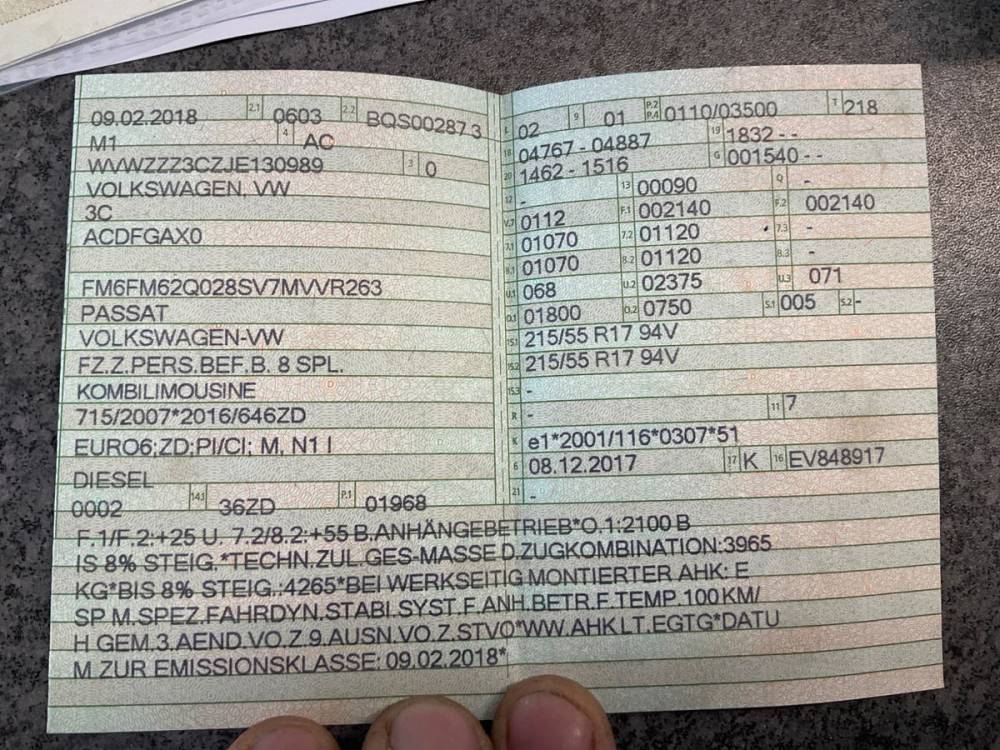 09.02.2018 2.1 0603 2.2 BQS00287 3
M1 4 AC
WVWZZZ3CZJE130989 3 0
VOLKSWAGEN, VW
3C
ACDFGAX0
FM6FM62Q028SV7MVVR263
PASSAT
VOLKSWAGEN-VW
FZ.Z.PERS.BEF.B. 8 SPL.
KOMBILIMOUSINE
715/2007*2016/646ZD
EURO6;ZD;PI/CI; M, N1 I
DIESEL
0002 14.1 36ZD P.1 01968
L 02 9 01 P.2 P.4 0110/03500 T 218
18 04767 - 04887 19 1832 - -
20 1462 - 1516 G 001540 - -
12 - 13 00090 Q -
V.7 0112 F.1 002140 F.2 002140
7.1 01070 7.2 01120 7.3 -
8.1 01070 8.2 01120 8.3 -
U.1 068 U.2 02375 U.3 071
O.1 01800 O.2 0750 S.1 005 S.2 -
15.1 215/55 R17 94V
15.2 215/55 R17 94V
15.3 -
R - 11 7
K e1*2001/116*0307*51
6 08.12.2017 17 K 16 EV848917
21 -
F.1/F.2:+25 U. 7.2/8.2:+55 B.ANHÄNGEBETRIEB*O.1:2100 B
IS 8% STEIG.*TECHN.ZUL.GES-MASSE D.ZUGKOMBINATION:3965
KG*BIS 8% STEIG.:4265*BEI WERKSEITIG MONTIERTER AHK: E
SP M.SPEZ.FAHRDYN.STABI.SYST.F.ANH.BETR.F.TEMP.100 KM/
H GEM.3.AEND.VO.Z.9.AUSN.VO.Z.STVO*WW.AHK LT.EGTG*DATU
M ZUR EMISSIONSKLASSE: 09.02.2018*